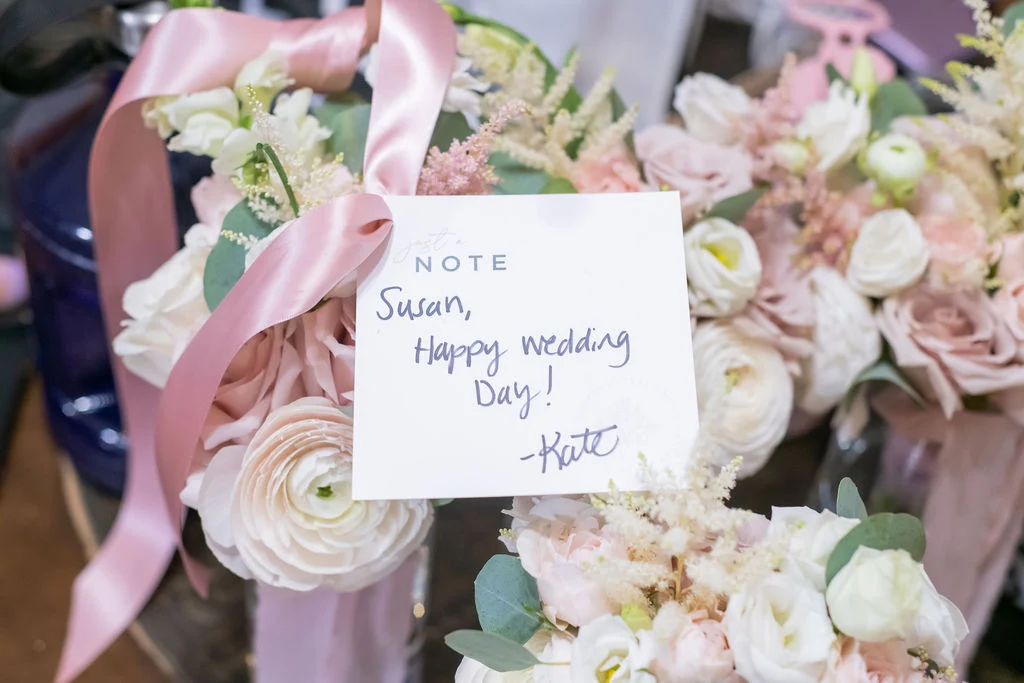 just a
NOTE
Susan,
Happy wedding
Day!
-Kate